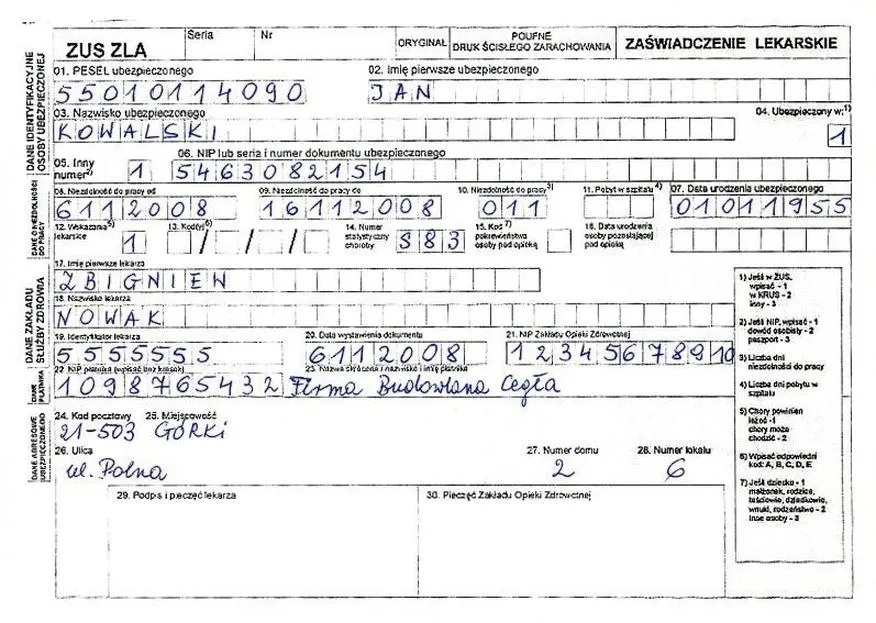 ZUS ZLA Seria Nr ORYGINAŁ POUFNE DRUK ŚCISŁEGO ZARACHOWANIA ZAŚWIADCZENIE LEKARSKIE
DANE IDENTYFIKACYJNE OSOBY UBEZPIECZONEJ
01. PESEL ubezpieczonego 02. Imię pierwsze ubezpieczonego
55010114090 JAN
03. Nazwisko ubezpieczonego 04. Ubezpieczony w:1)
KOWALSKI 1
05. Inny numer2) 1 06. NIP lub seria i numer dokumentu ubezpieczonego
5463082154
DANE O NIEZDOLNOŚCI DO PRACY
08. Niezdolność do pracy od 09. Niezdolność do pracy do 10. Niezdolność do pracy3) 11. Pobyt w szpitalu4) 07. Data urodzenia ubezpieczonego
6112008 16112008 011 01011955
12. Wskazania5) lekarskie 1 13. Kod(y)6) / / / 14. Numer statystyczny choroby S83 15. Kod7) pokrewieństwa osoby pod opieką 16. Data urodzenia osoby pozostającej pod opieką
DANE ZAKŁADU SŁUŻBY ZDROWIA
17. Imię pierwsze lekarza
ZBIGNIEW
18. Nazwisko lekarza
NOWAK
19. Identyfikator lekarza 20. Data wystawienia dokumentu 21. NIP Zakładu Opieki Zdrowotnej
5555555 6112008 12345678910
DANE PŁATNIKA
22. NIP płatnika (wpisać bez kresek) 23. Nazwa skrócona / nazwisko i imię płatnika
1098765432 Firma Budowlana Cegła
DANE ADRESOWE UBEZPIECZONEGO
24. Kod pocztowy 25. Miejscowość
21-503 GÓRKI
26. Ulica 27. Numer domu 28. Numer lokalu
ul. Polna 2 6
29. Podpis i pieczęć lekarza 30. Pieczęć Zakładu Opieki Zdrowotnej
1) Jeśli w ZUS,
wpisać - 1
w KRUS - 2
inny - 3
2) Jeśli NIP, wpisać - 1
dowód osobisty - 2
paszport - 3
3) Liczba dni
niezdolności do pracy
4) Liczba dni pobytu w
szpitalu
5) Chory powinien
leżeć -1
chory może
chodzić - 2
6) Wpisać odpowiedni
kod: A, B, C, D, E
7) Jeśli dziecko - 1
małżonek, rodzice,
teściowie, dziadkowie,
wnuki, rodzeństwo - 2
inne osoby - 3